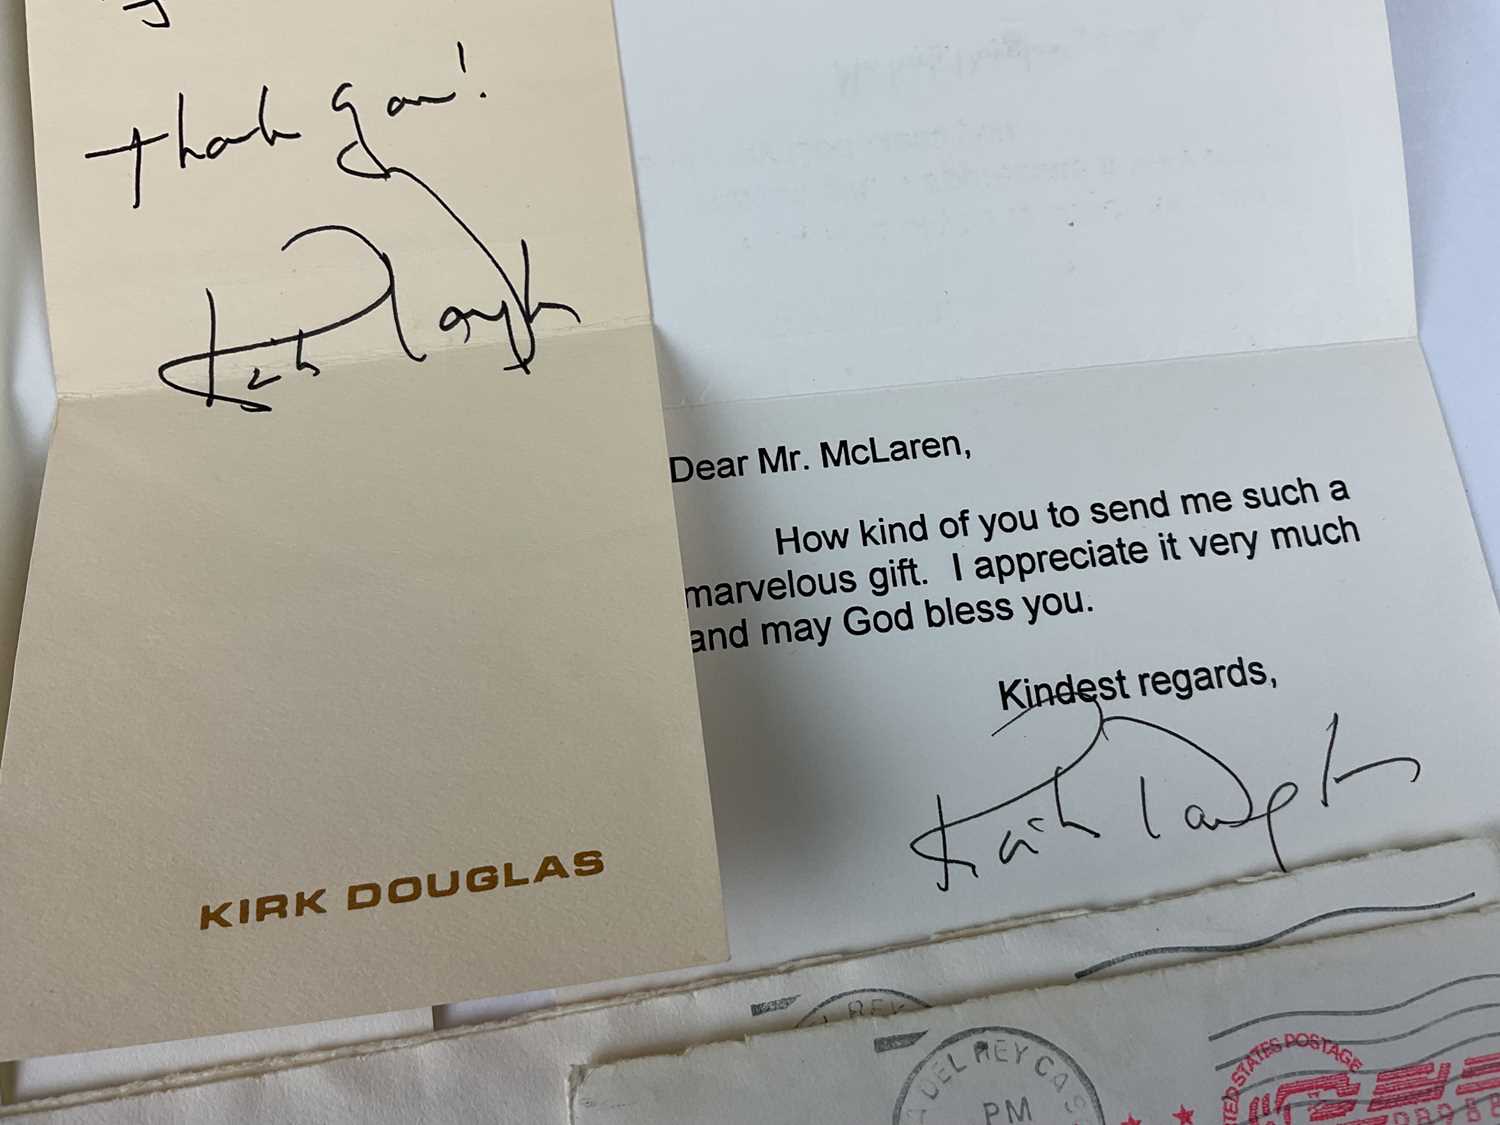 Thank you!
Kirk Douglas
KIRK DOUGLAS
Dear Mr. McLaren,
How kind of you to send me such a
marvelous gift. I appreciate it very much
and may God bless you.
Kindest regards,
Kirk Douglas
REY
DEL REY CA
PM
UNITED STATES POSTAGE